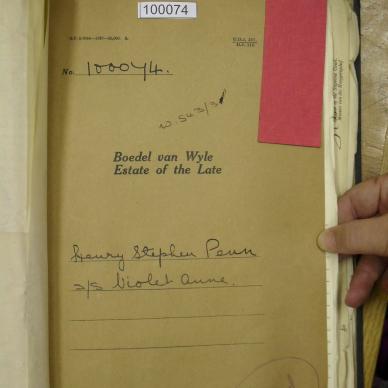 100074
No. 100074.
W. 543/31
Boedel van Wyle
Estate of the Late
Henry Stephen Penn
s/s Violet Anne.